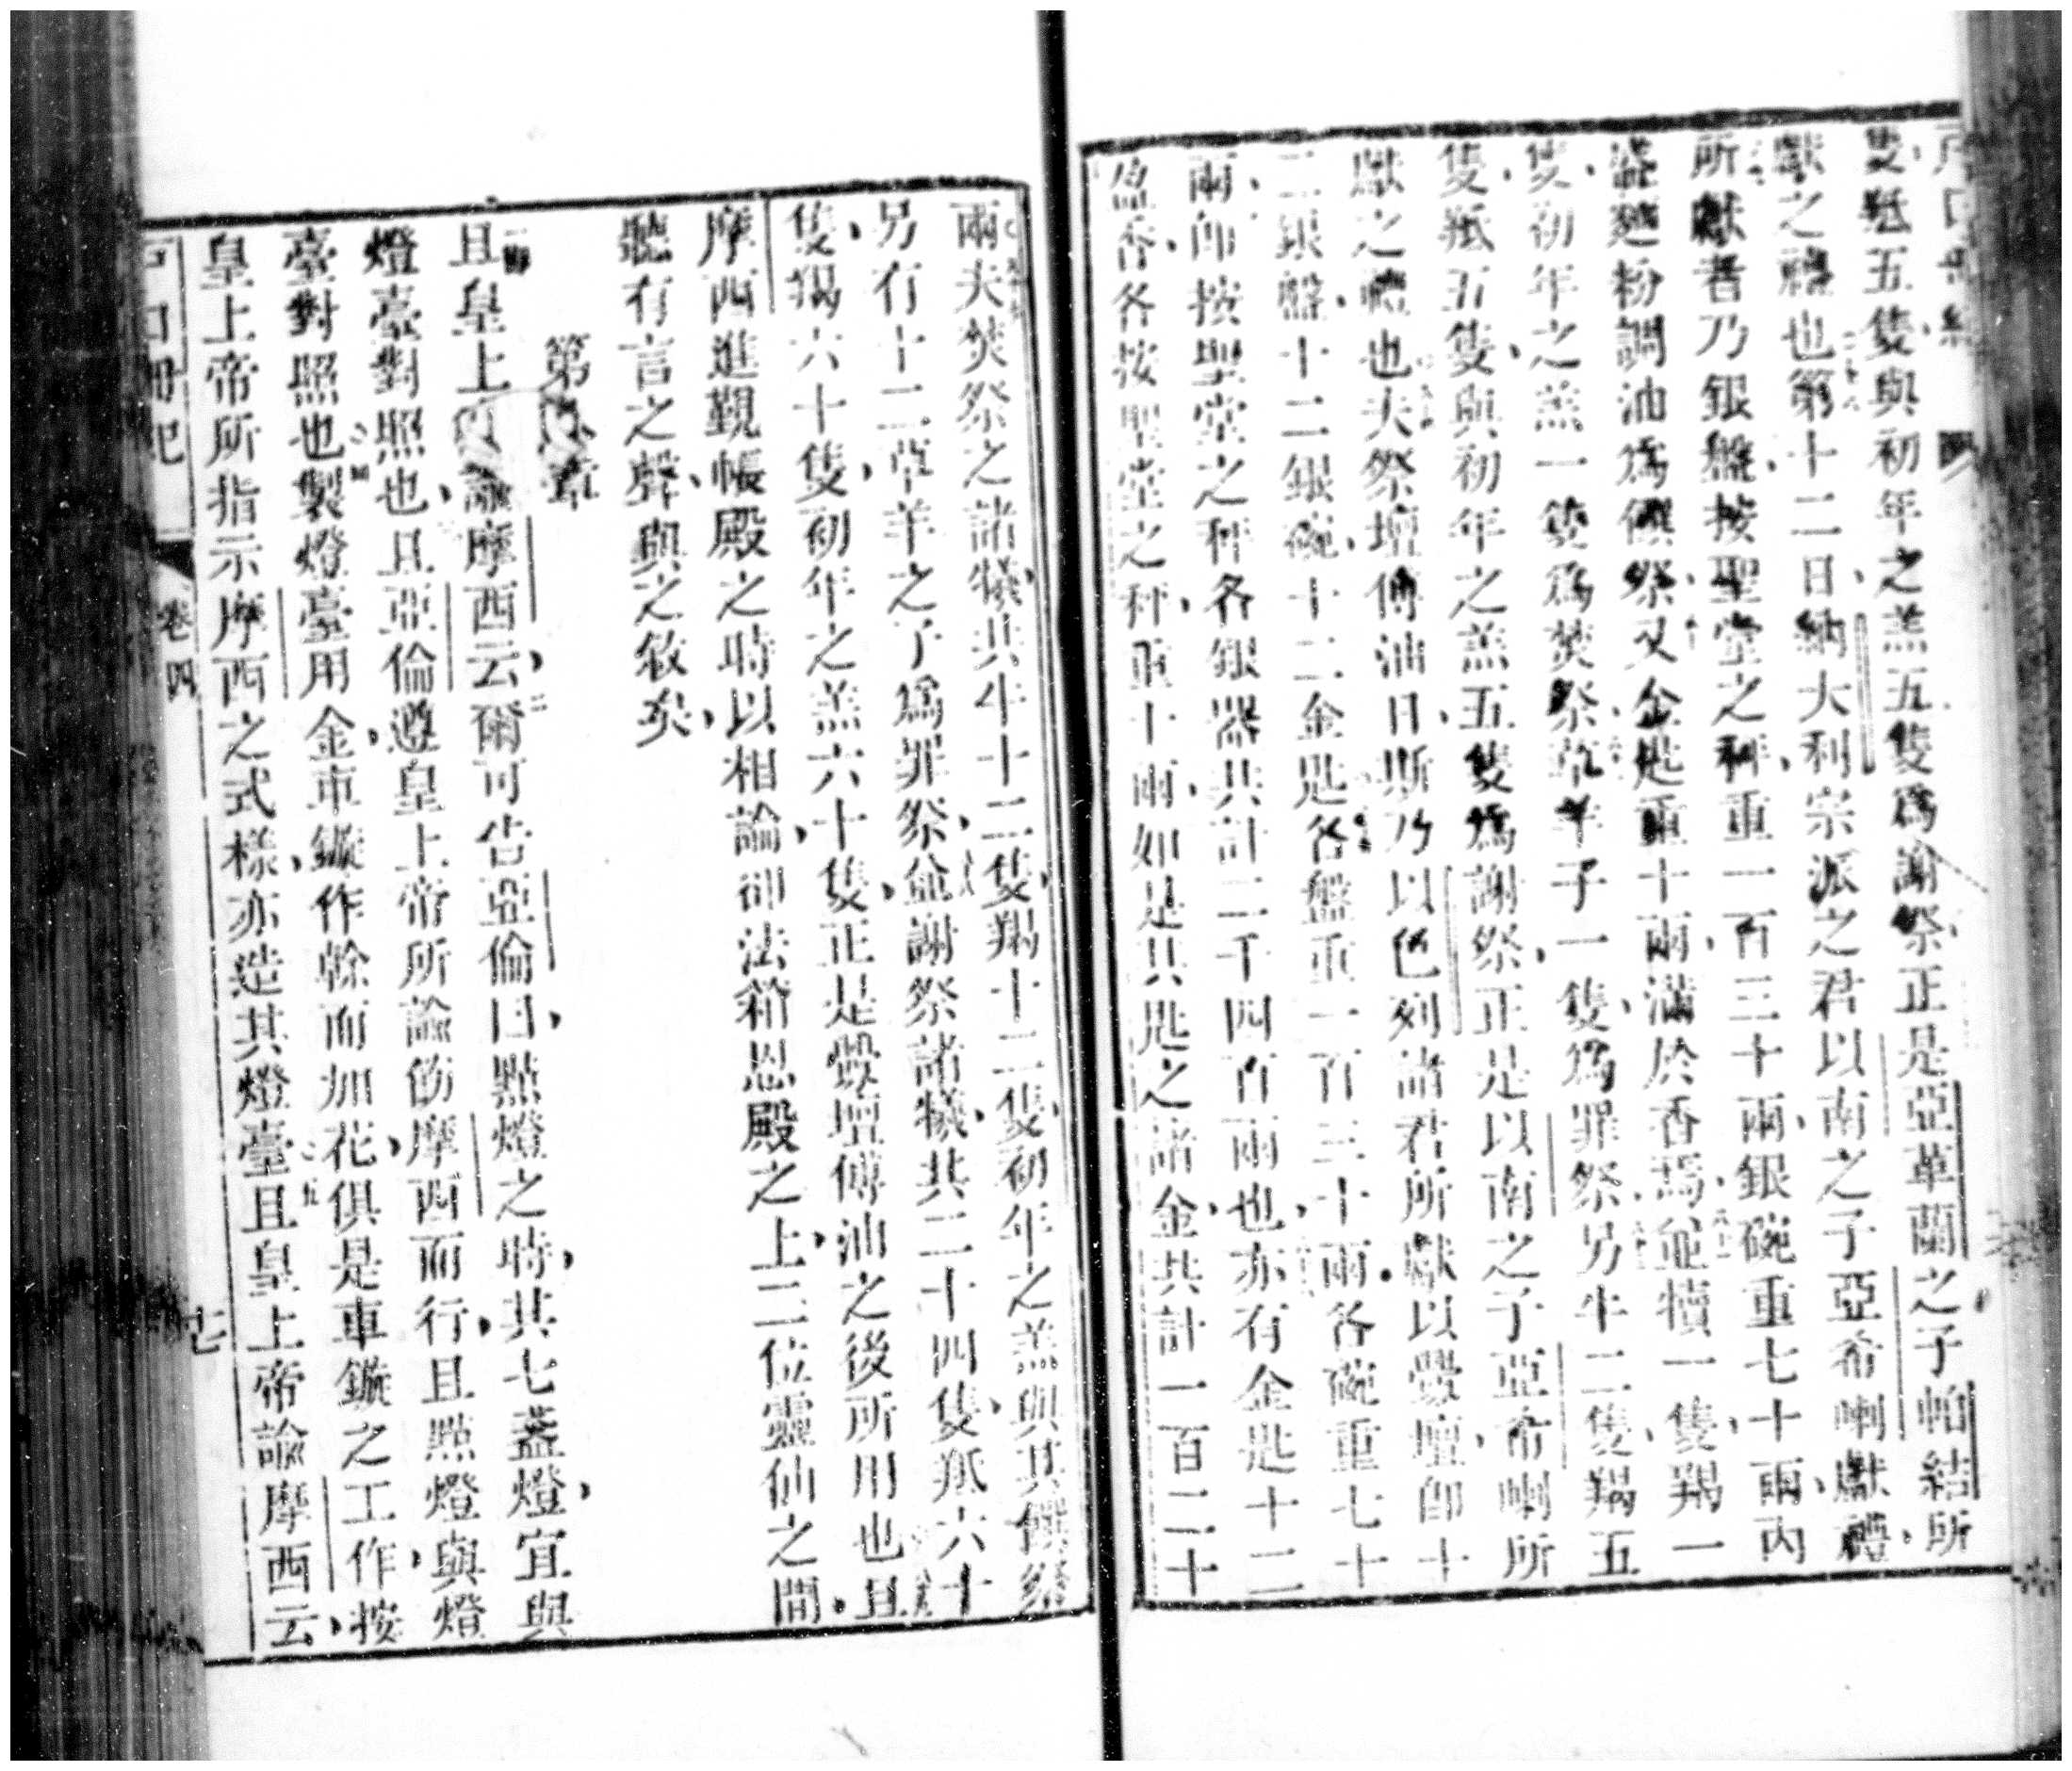 隻羝五隻與初年之羔五隻爲謝祭正是亞革蘭之子帕結所
獻之禮也第十二日納大利宗派之君以南之子亞希喇獻禮
所獻者乃銀盤按聖堂之秤重一百三十兩銀碗重七十兩內
盛麪粉調油爲饌祭又金匙重十兩滿於香焉並犢一隻羯一
隻初年之羔一隻爲焚祭草羊子一隻爲罪祭另牛二隻羯五
隻羝五隻與初年之羔五隻爲謝祭正是以南之子亞希喇所
獻之禮也夫祭壇傅油日斯乃以色列諸君所獻以釁壇卽十
二銀盤十二銀碗十二金匙各盤重一百三十兩各碗重七十
兩卽按聖堂之秤各銀器共計二千四百兩也亦有金匙十二
盈香各按聖堂之秤重十兩如是其匙之諸金共計一百二十
兩夫焚祭之諸犧共牛十二隻羯十二隻初年之羔與其饌祭
另有十二草羊之子爲罪祭並謝祭諸犧共二十四隻羝六十
隻羯六十隻初年之羔六十隻正是釁壇傅油之後所用也且
摩西進覲帳殿之時以相論卽法箱恩殿之上二位靈仙之間
聽有言之聲與之敘矣
第 章
且皇上 諭摩西云爾可告亞倫曰點燈之時共七盞燈宜與
燈臺對照也且亞倫遵皇上帝所諭飭摩西而行且點燈與燈
臺對照也製燈臺用金車鏇作幹而加花俱是車鏇之工作按
皇上帝所指示摩西之式樣亦造其燈臺且皇上帝諭摩西云
戶口冊紀 卷四